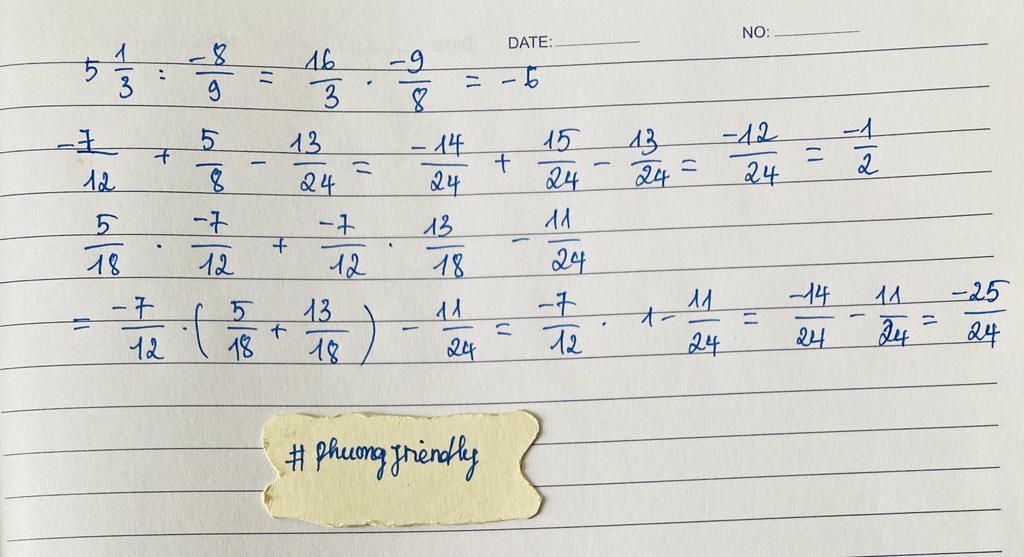 DATE: NO:
5 1/3 : -8/9 = 16/3 . -9/8 = -6
-7/12 + 5/8 - 13/24 = -14/24 + 15/24 - 13/24 = -12/24 = -1/2
5/18 . -7/12 + -7/12 . 13/18 - 11/24
= -7/12 . ( 5/18 + 13/18 ) - 11/24 = -7/12 . 1 - 11/24 = -14/24 - 11/24 = -25/24
# phuongfriendly